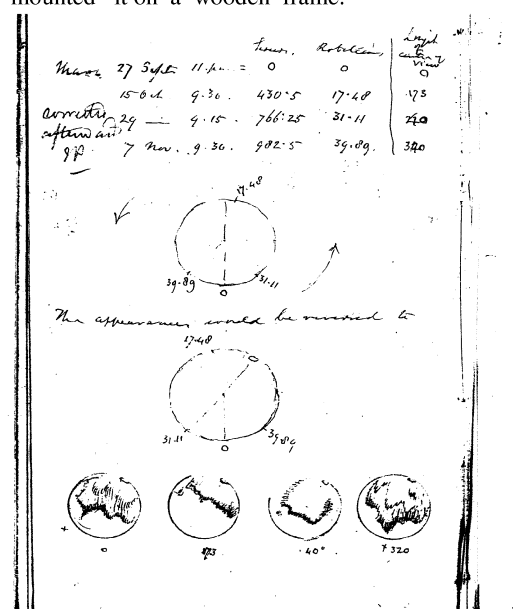 mounted it on a wooden frame.
hours. Rotations Longit of center of view
27 Sept 11. pm = 0 0 0
15 Oct 9.30. 430.5 17.48 173
29 — 9.15. 766.25 31.11 40
7 Nov. 9.30. 982.5 39.89. 320
17.48
39.89 31.11
0
The appearances would be reversed to
17.48 0
31.11 39.89
0
+ 0 173 40° + 320